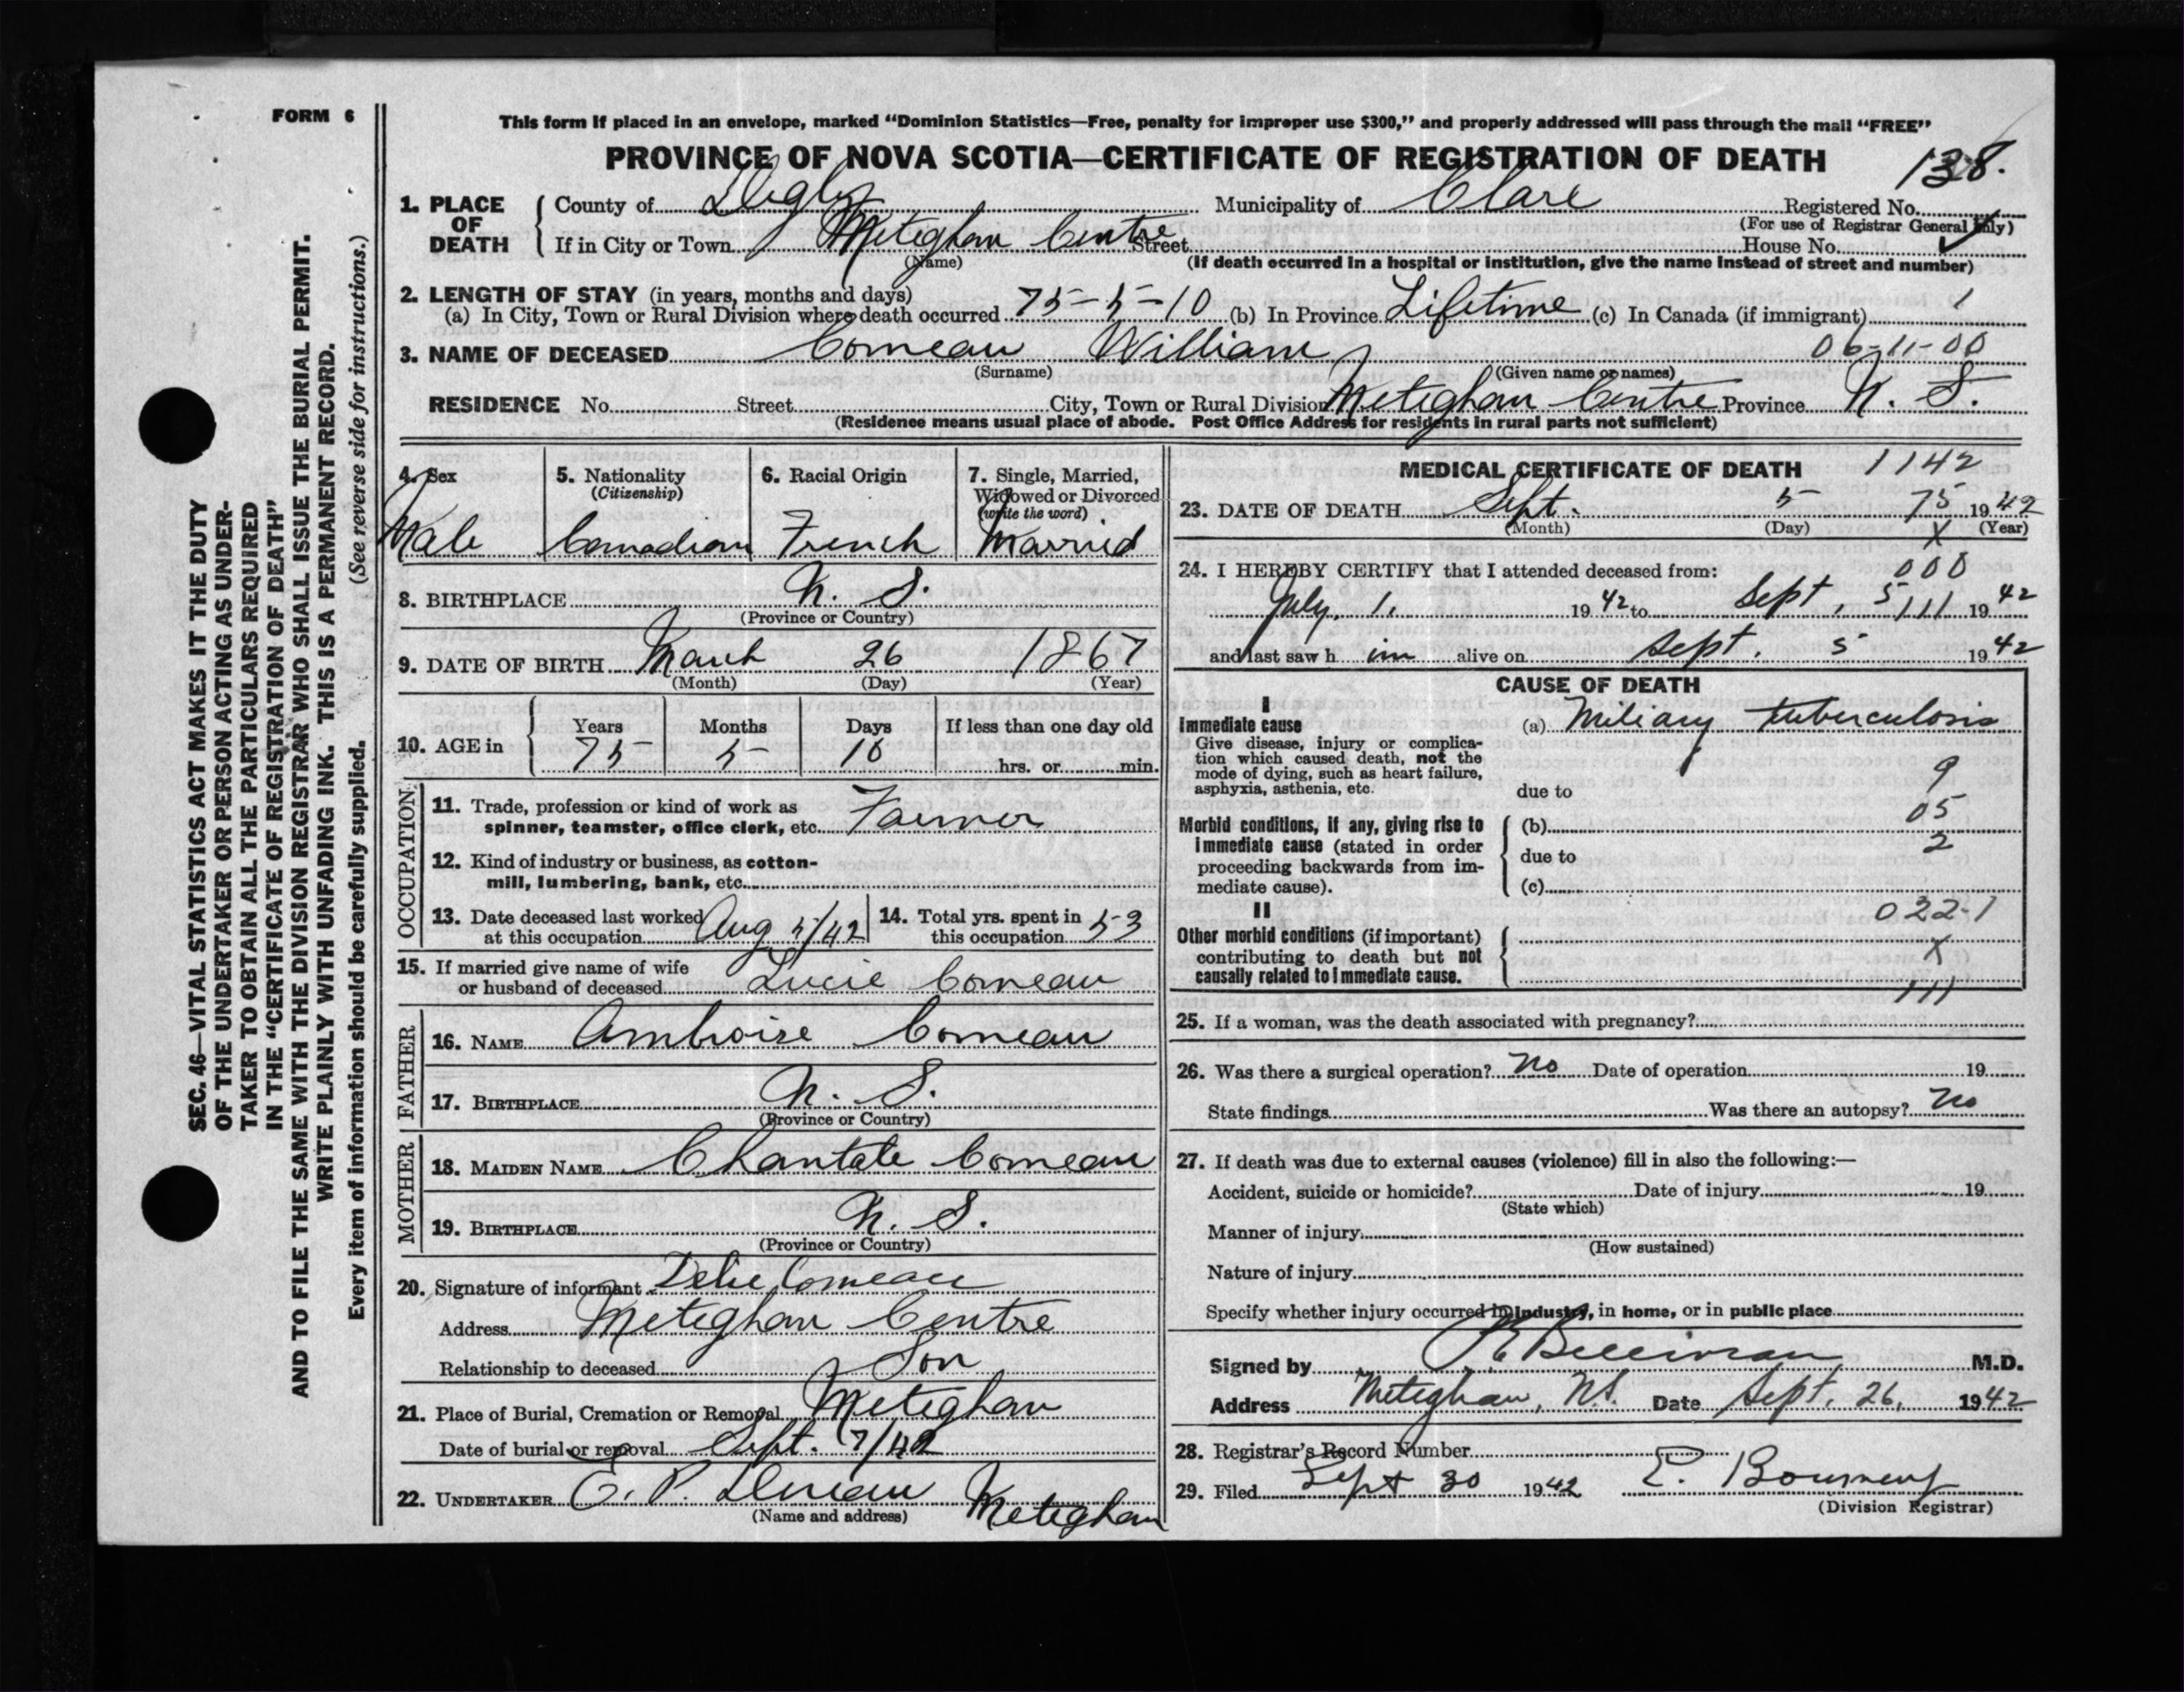 FORM 6
SEC. 46—VITAL STATISTICS ACT MAKES IT THE DUTY
OF THE UNDERTAKER OR PERSON ACTING AS UNDER-
TAKER TO OBTAIN ALL THE PARTICULARS REQUIRED
IN THE "CERTIFICATE OF REGISTRATION OF DEATH"
AND TO FILE THE SAME WITH THE DIVISION REGISTRAR WHO SHALL ISSUE THE BURIAL PERMIT.
WRITE PLAINLY WITH UNFADING INK. THIS IS A PERMANENT RECORD.
Every item of information should be carefully supplied. (See reverse side for instructions.)
This form if placed in an envelope, marked "Dominion Statistics—Free, penalty for improper use $300," and properly addressed will pass through the mail "FREE"
PROVINCE OF NOVA SCOTIA—CERTIFICATE OF REGISTRATION OF DEATH 138.
1. PLACE OF DEATH County of Digby Municipality of Clare Registered No.
(For use of Registrar General only)
If in City or Town Meteghan Centre Street House No.
(Name) (If death occurred in a hospital or institution, give the name instead of street and number)
2. LENGTH OF STAY (in years, months and days)
(a) In City, Town or Rural Division where death occurred 75-5-10 (b) In Province Lifetime (c) In Canada (if immigrant) 1
3. NAME OF DECEASED Comeau William 06-11-00
(Surname) (Given name or names)
RESIDENCE No. Street City, Town or Rural Division Meteghan Centre Province N. S.
(Residence means usual place of abode. Post Office Address for residents in rural parts not sufficient)
4. Sex 5. Nationality 6. Racial Origin 7. Single, Married,
(Citizenship) Widowed or Divorced
(write the word)
Male Canadian French Married
8. BIRTHPLACE N. S.
(Province or Country)
9. DATE OF BIRTH March 26 1867
(Month) (Day) (Year)
10. AGE in Years Months Days If less than one day old
75 5 10 hrs. or min.
OCCUPATION
11. Trade, profession or kind of work as
spinner, teamster, office clerk, etc. Farmer
12. Kind of industry or business, as cotton-
mill, lumbering, bank, etc.
13. Date deceased last worked 14. Total yrs. spent in
at this occupation Aug 5/42 this occupation 53
15. If married give name of wife
or husband of deceased Lucie Comeau
FATHER
16. NAME Ambroise Comeau
17. BIRTHPLACE N. S.
(Province or Country)
MOTHER
18. MAIDEN NAME Chantale Comeau
19. BIRTHPLACE N. S.
(Province or Country)
20. Signature of informant Comeau
Address Meteghan Centre
Relationship to deceased Son
21. Place of Burial, Cremation or Removal Meteghan
Date of burial or removal Sept. 7/42
22. UNDERTAKER E. P. Meteghan
(Name and address)
MEDICAL CERTIFICATE OF DEATH 1142
23. DATE OF DEATH Sept. 5 75 1942
(Month) (Day) X (Year)
24. I HEREBY CERTIFY that I attended deceased from: 000
July, 1. 1942 to Sept, 5 111 1942
and last saw h im alive on Sept. 5 1942
CAUSE OF DEATH
I
Immediate cause (a) Miliary tuberculosis
Give disease, injury or complica-
tion which caused death, not the
mode of dying, such as heart failure,
asphyxia, asthenia, etc. due to 9
05
Morbid conditions, if any, giving rise to (b)
immediate cause (stated in order 2
proceeding backwards from im- due to
mediate cause). (c)
II 022-1
Other morbid conditions (if important)
contributing to death but not X
causally related to immediate cause.
111
25. If a woman, was the death associated with pregnancy?
26. Was there a surgical operation? No Date of operation 19
State findings Was there an autopsy? No
27. If death was due to external causes (violence) fill in also the following:—
Accident, suicide or homicide? Date of injury 19
(State which)
Manner of injury
(How sustained)
Nature of injury
Specify whether injury occurred in industry, in home, or in public place
Signed by M.D.
Address Meteghan, N.S. Date Sept. 26, 1942
28. Registrar's Record Number
29. Filed Sept 30 1942 E.
(Division Registrar)